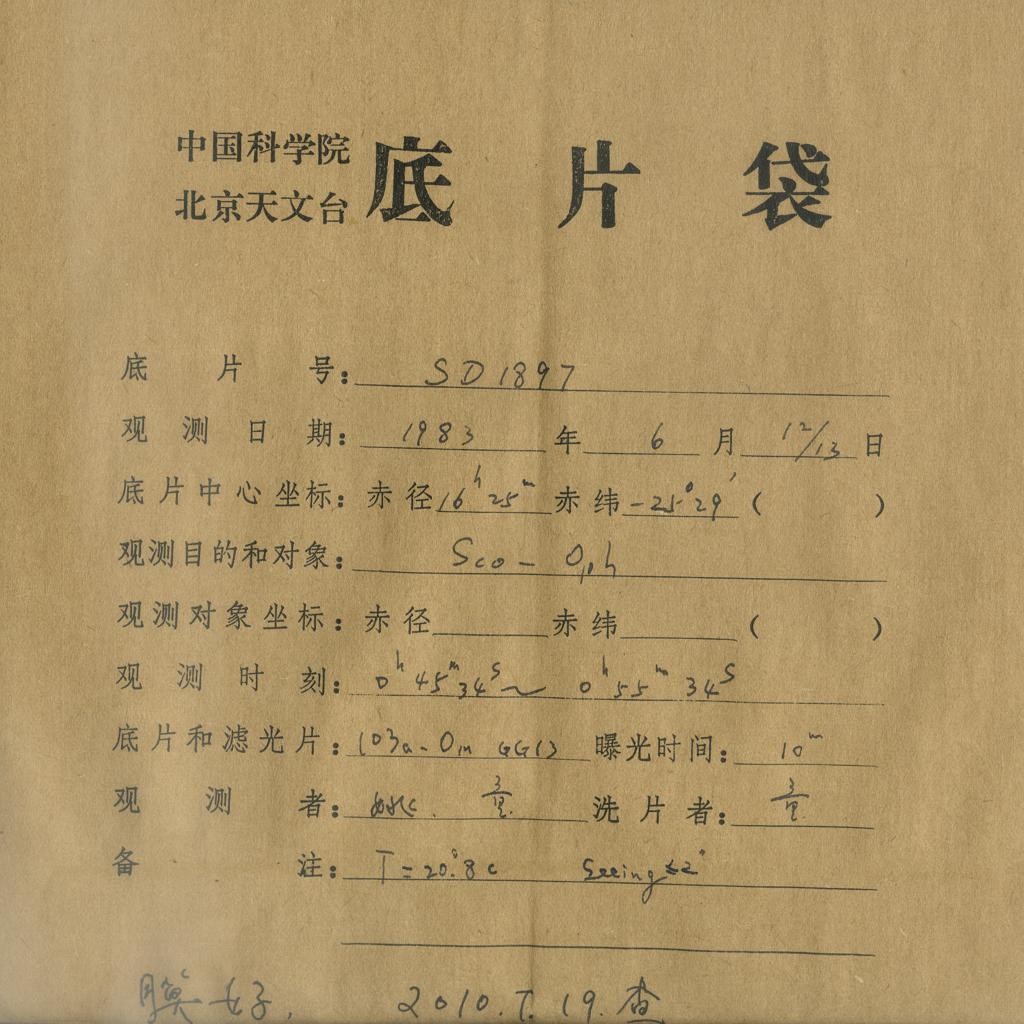 中国科学院
北京天文台
底片袋
底片号: SD1897
观测日期: 1983年 6月 12/13日
底片中心坐标: 赤径16h25m赤纬-25°29′( )
观测目的和对象: Sco-Oph
观测对象坐标: 赤径 赤纬 ( )
观测时刻: 0h45m34s~ 0h55m34s
底片和滤光片: 103a-O GG13 曝光时间: 10m
观测者: 洗片者:
备注: T=20.°8c Seeing≤2"
膜好. 2010. 19.查